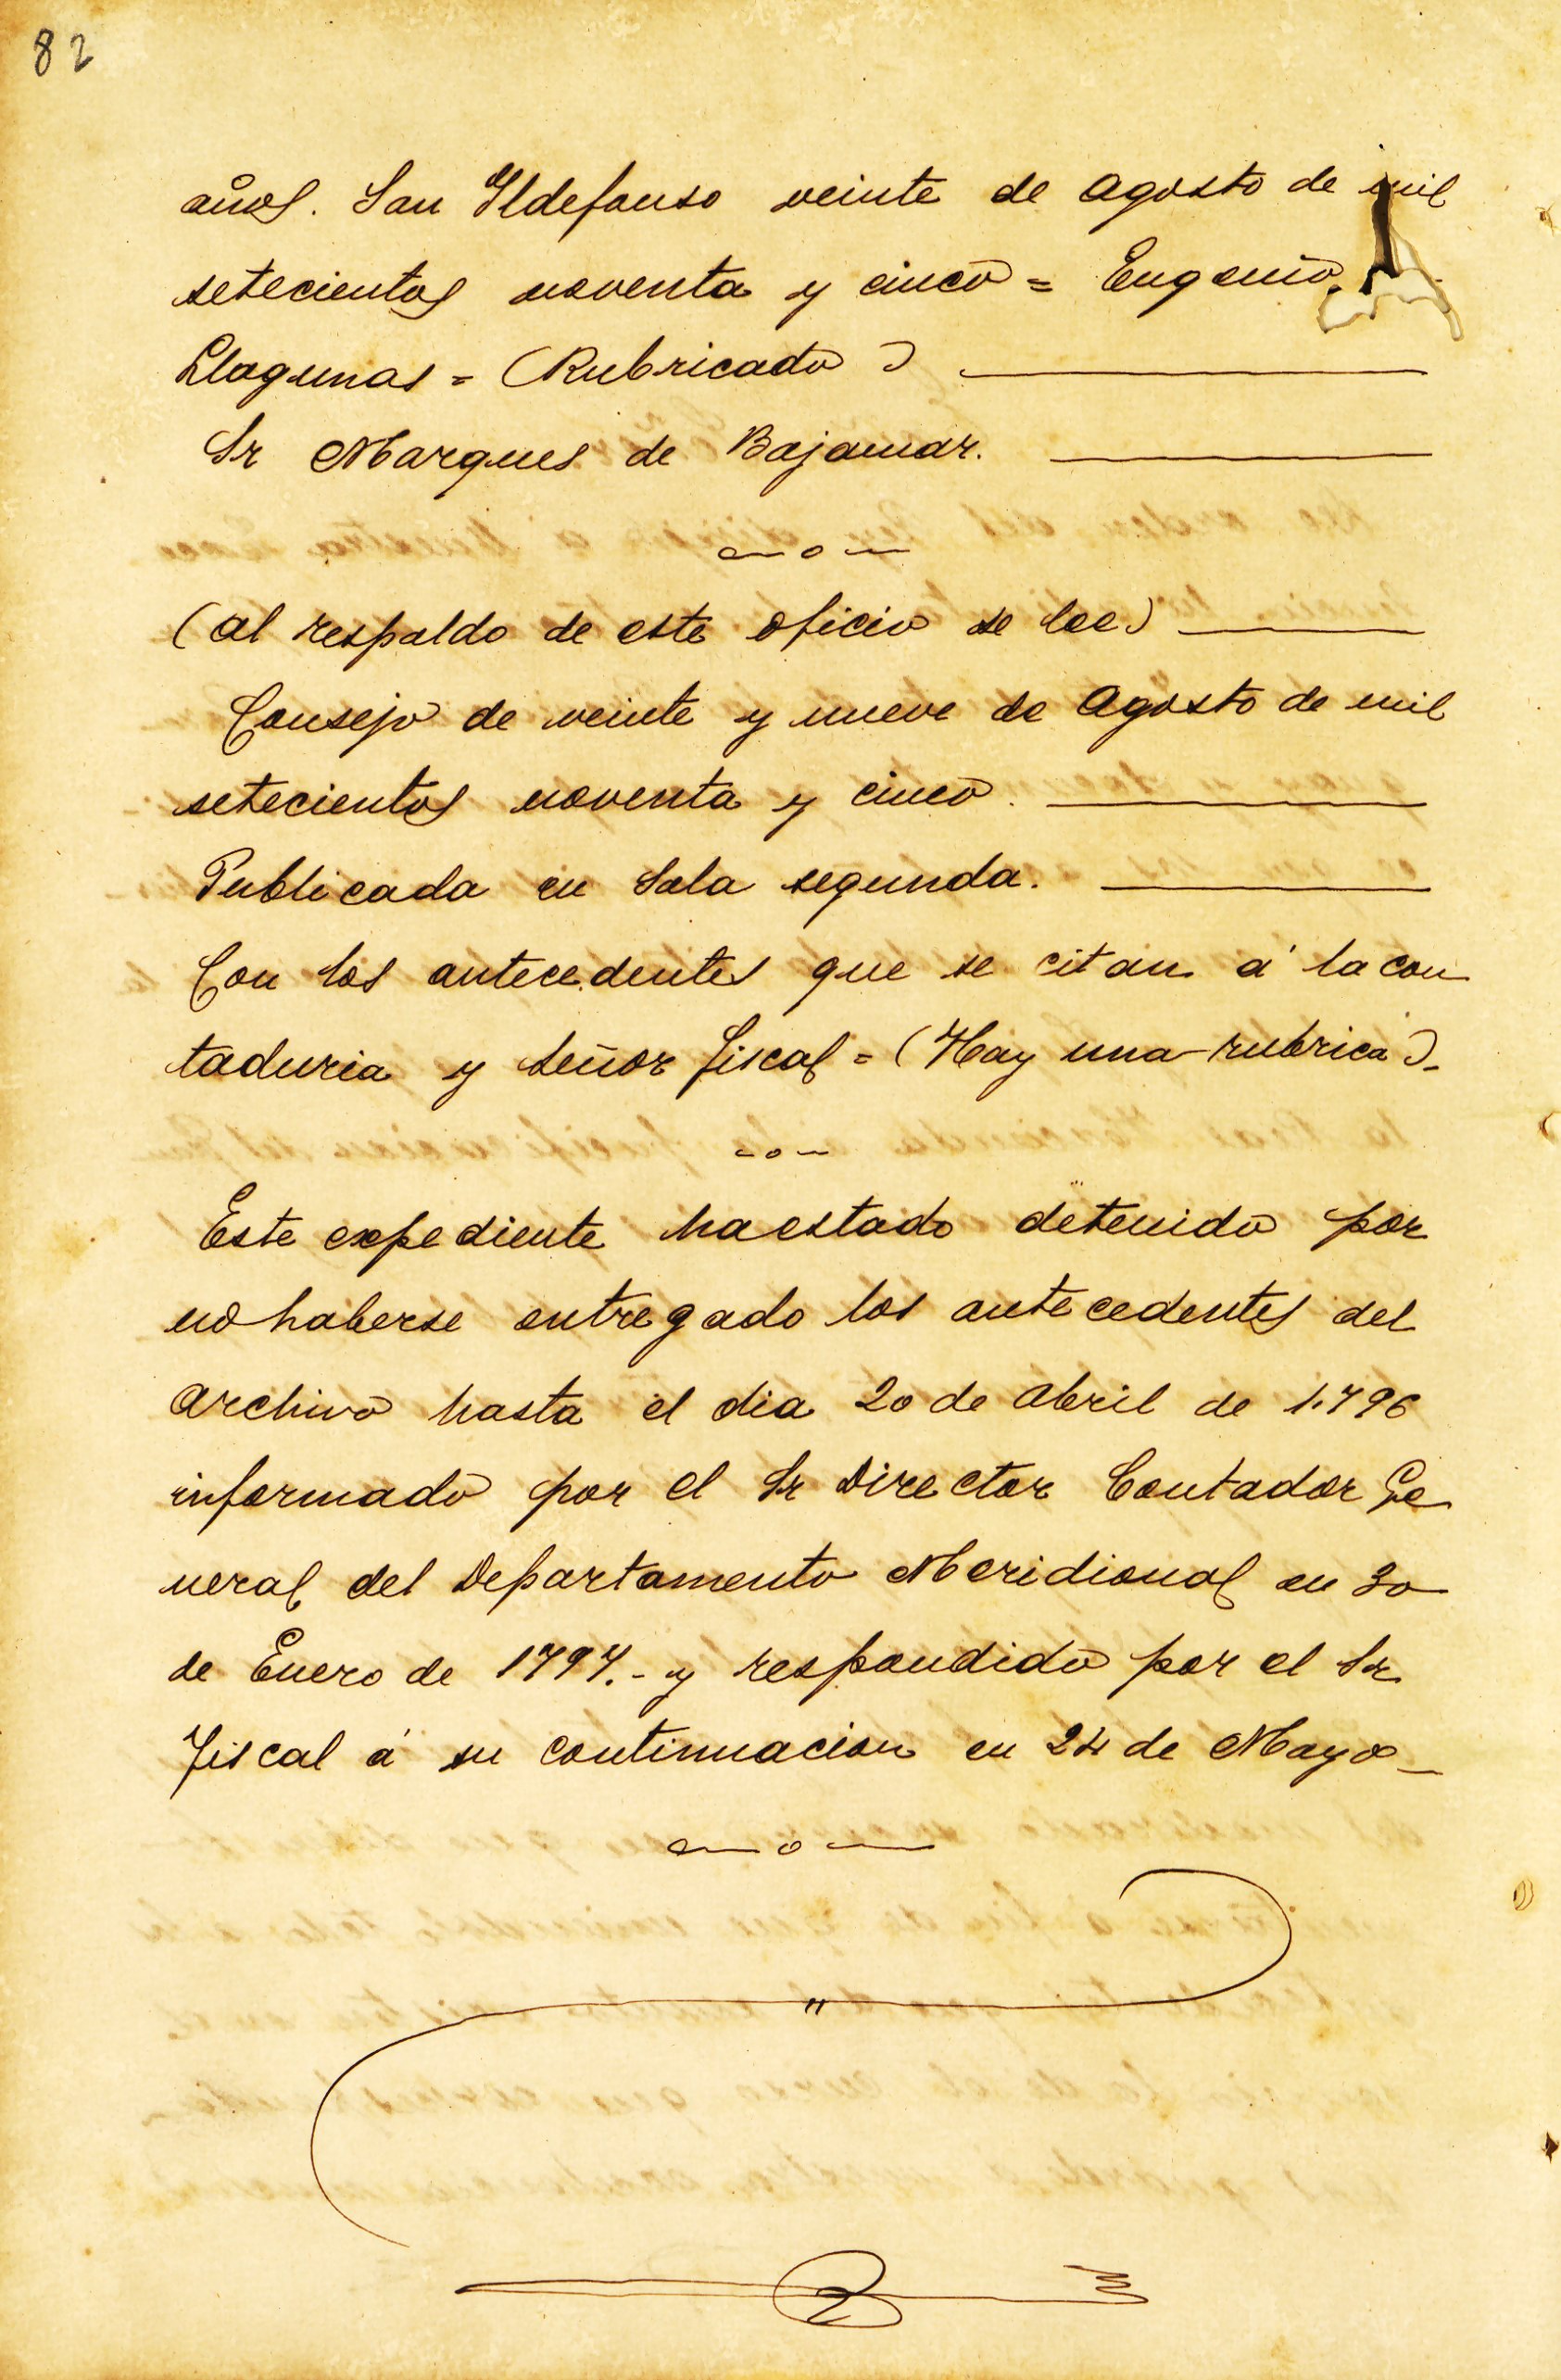 82
años. San Yldefonso veinte de Agosto de mil
setecientos noventa y cinco = Eugenio
Llagunas = (Rubricado)
Sr Marques de Bajamar.
(al respaldo de este oficio se lee)
Consejo de veinte y nueve de Agosto de mil
setecientos noventa y cinco.
Publicada en Sala segunda.
Con los antecedentes que se citan á la con
taduria y Señor fiscal = (Hay una rubrica)-
Este expediente ha estado detenido por
no haberse entregado los antecedentes del
archivo hasta el dia 20 de Abril de 1.796
informado por el Sr Director Contador Ge
neral del Departamento Meridional en 30
de Enero de 1797.- y respondido por el Sr
Fiscal á su continuacion en 24 de Mayo-